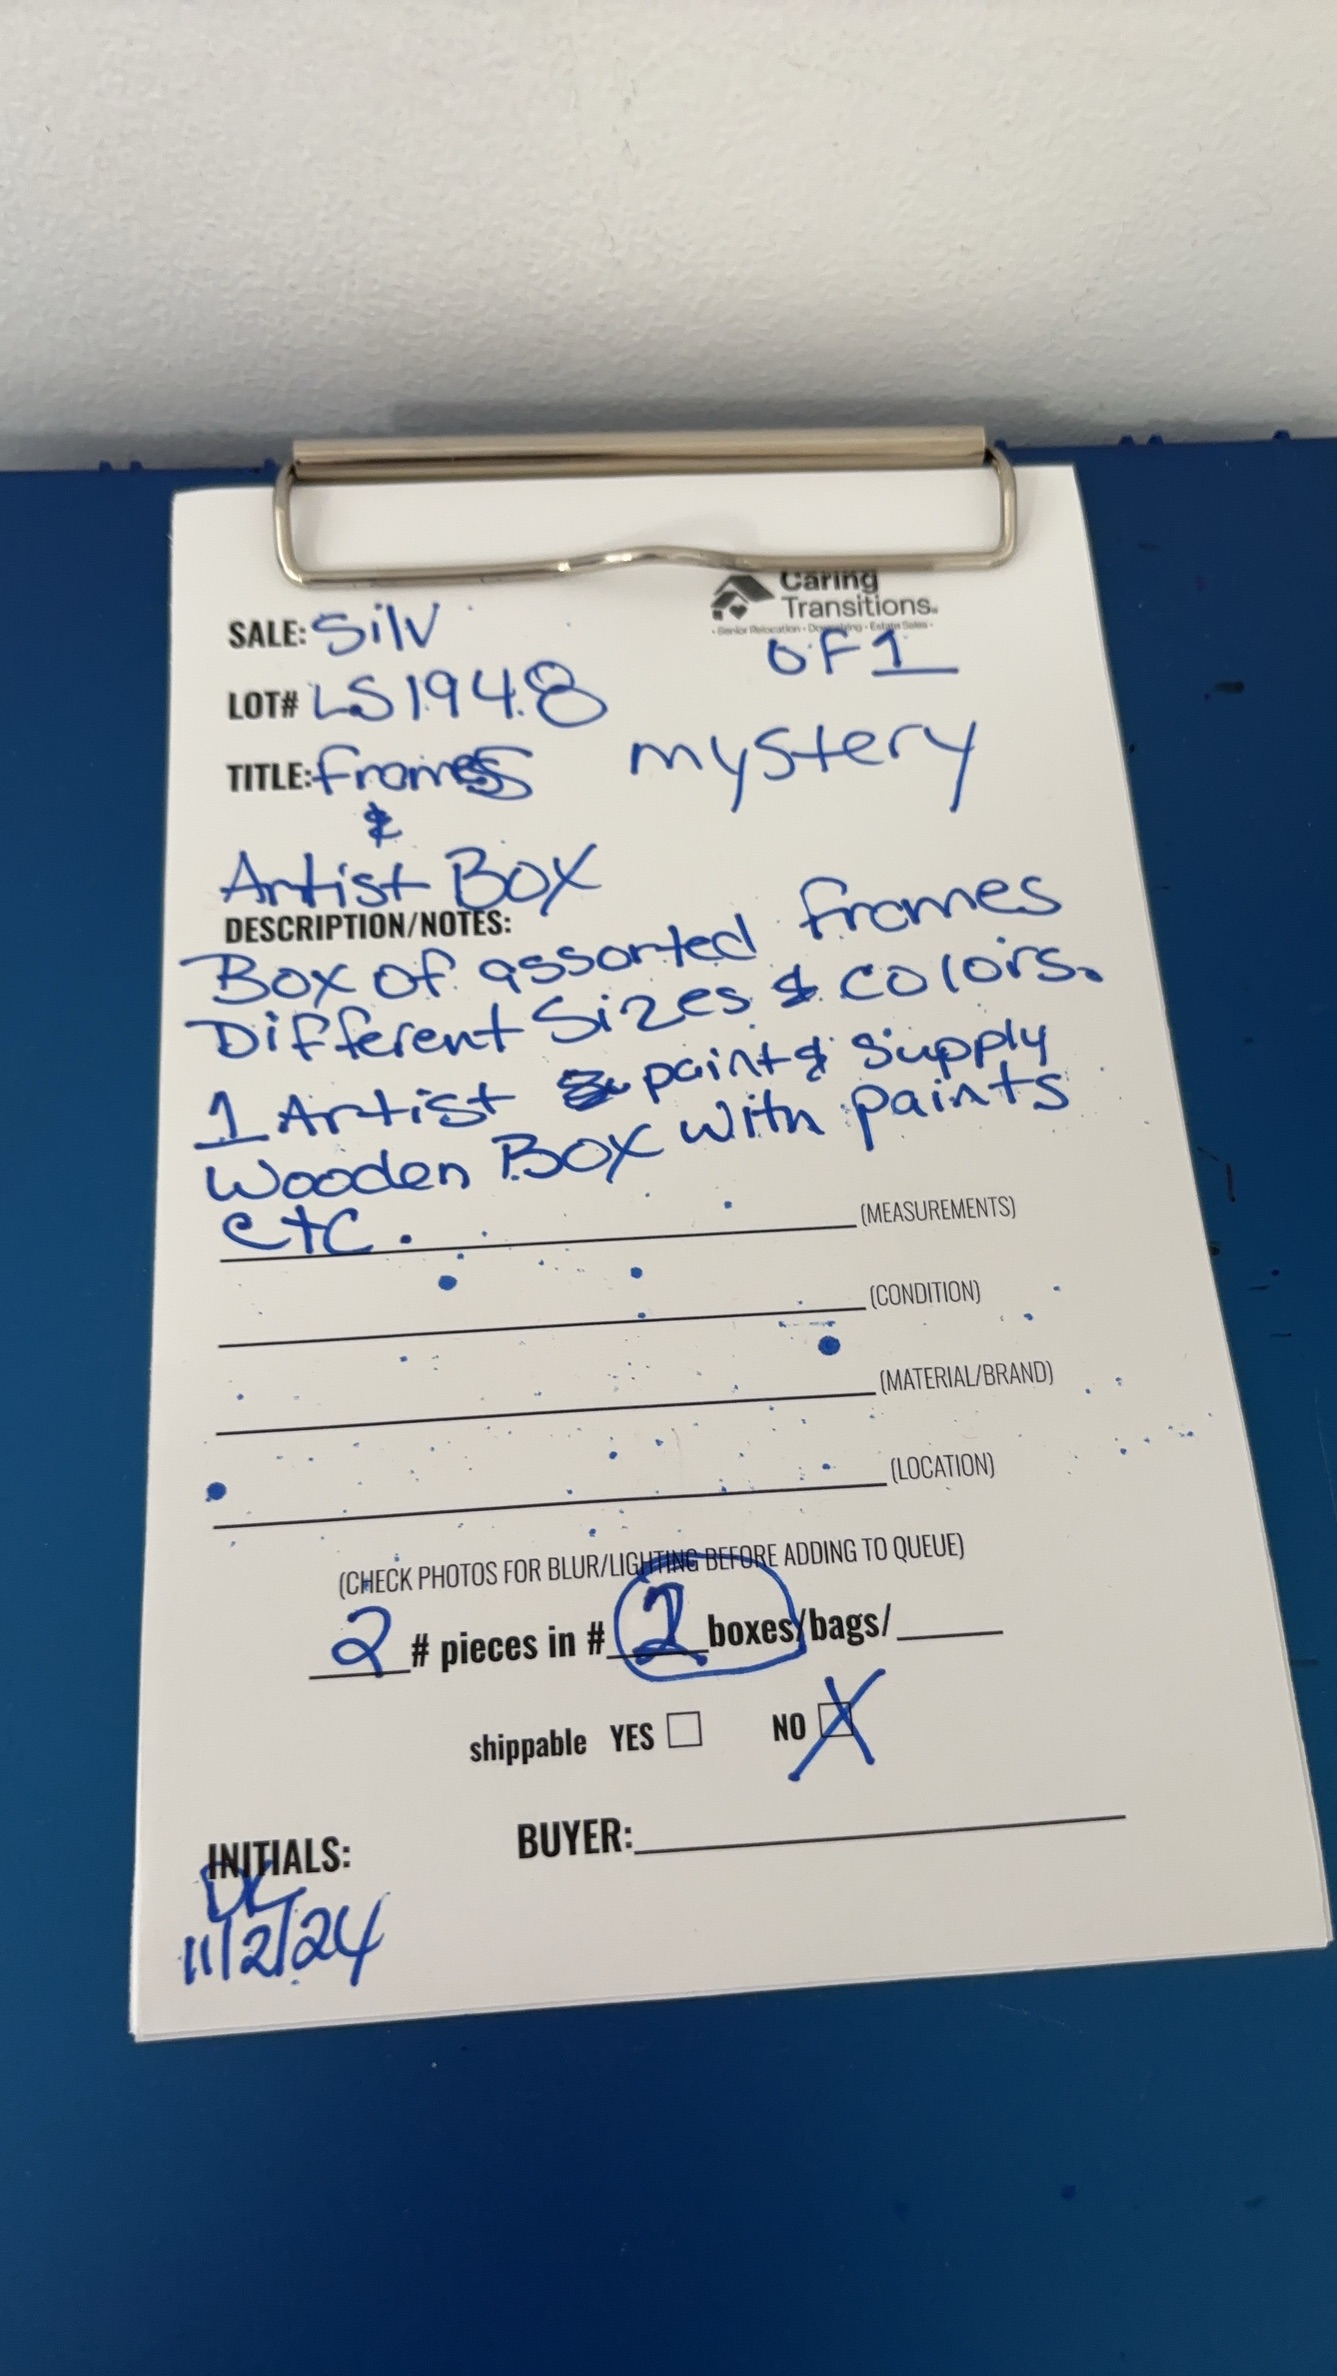 Caring
Transitions.
• Senior Relocation • Downsizing • Estate Sales •
SALE: Silv
OF 1
LOT# LS1948
TITLE: frames mystery
&
Artist Box
DESCRIPTION/NOTES:
Box of assorted frames
Different Sizes & colors.
1 Artist paint & supply
Wooden Box with paints
etc. (MEASUREMENTS)
(CONDITION)
(MATERIAL/BRAND)
(LOCATION)
(CHECK PHOTOS FOR BLUR/LIGHTING BEFORE ADDING TO QUEUE)
2 # pieces in # 2 boxes/bags/
shippable YES NO X
INITIALS: BUYER:
DC
11/2/24